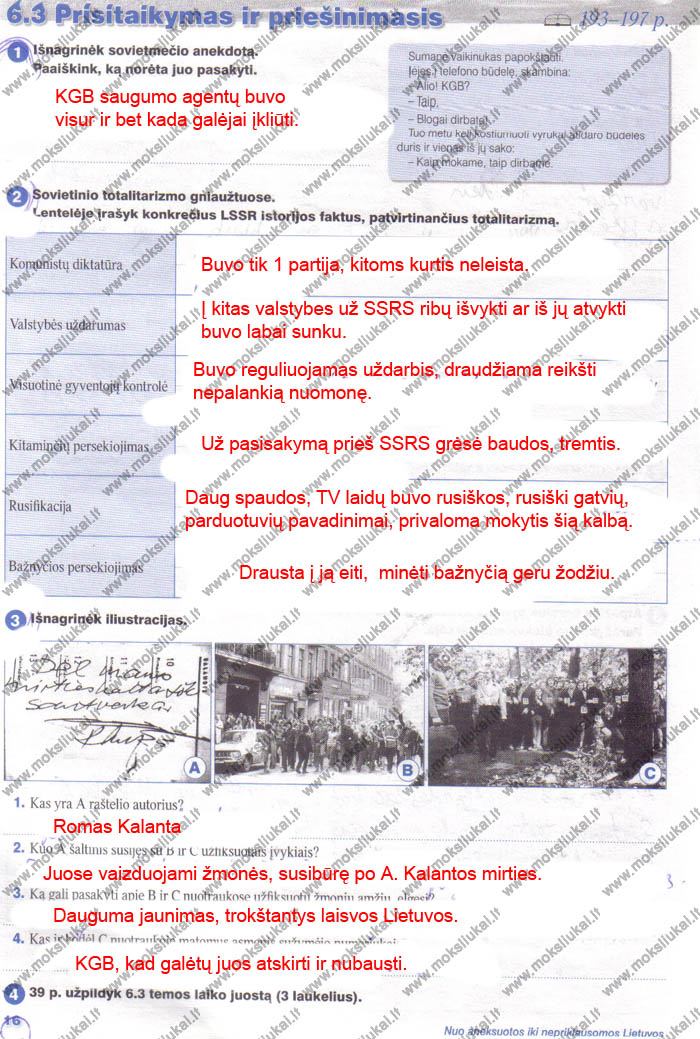 6.3 Prisitaikymas ir priešinimasis
193–197 p.
1 Išnagrinėk sovietmečio anekdotą.
Paaiškink, ką norėta juo pasakyti.
KGB saugumo agentų buvo
visur ir bet kada galėjai įkliūti.
Sumanė vaikinukas papokštauti.
Įėjęs į telefono būdelę, skambina:
– Alio! KGB?
– Taip.
– Blogai dirbate!
Tuo metu keli kostiumuoti vyrukai atidaro būdelės
duris ir vienas iš jų sako:
– Kaip mokame, taip dirbame.
2 Sovietinio totalitarizmo gniaužtuose.
Lentelėje įrašyk konkrečius LSSR istorijos faktus, patvirtinančius totalitarizmą.
Komunistų diktatūra
Buvo tik 1 partija, kitoms kurtis neleista.
Valstybės uždarumas
Į kitas valstybes už SSRS ribų išvykti ar iš jų atvykti
buvo labai sunku.
Visuotinė gyventojų kontrolė
Buvo reguliuojamas uždarbis, draudžiama reikšti
nepalankią nuomonę.
Kitaminčių persekiojimas
Už pasisakymą prieš SSRS grėsė baudos, tremtis.
Rusifikacija
Daug spaudos, TV laidų buvo rusiškos, rusiški gatvių,
parduotuvių pavadinimai, privaloma mokytis šią kalbą.
Bažnyčios persekiojimas
Drausta į ją eiti, minėti bažnyčią geru žodžiu.
3 Išnagrinėk iliustracijas.
Dėl mano
mirties kaltas tik
santvarka
A
B
C
1. Kas yra A raštelio autorius?
Romas Kalanta
2. Kuo A šaltinis susijęs su B ir C užfiksuotais įvykiais?
Juose vaizduojami žmonės, susibūrę po A. Kalantos mirties.
3. Ką gali pasakyti apie B ir C nuotraukose užfiksuotų žmonių amžių, elgesį?
Dauguma jaunimas, trokštantys laisvos Lietuvos.
4. Kas ir kodėl C nuotraukoje matomus asmenis sužymėjo numeriukais
KGB, kad galėtų juos atskirti ir nubausti.
4 39 p. užpildyk 6.3 temos laiko juostą (3 laukelius).
16
Nuo aneksuotos iki nepriklausomos Lietuvos
www.moksliukai.lt